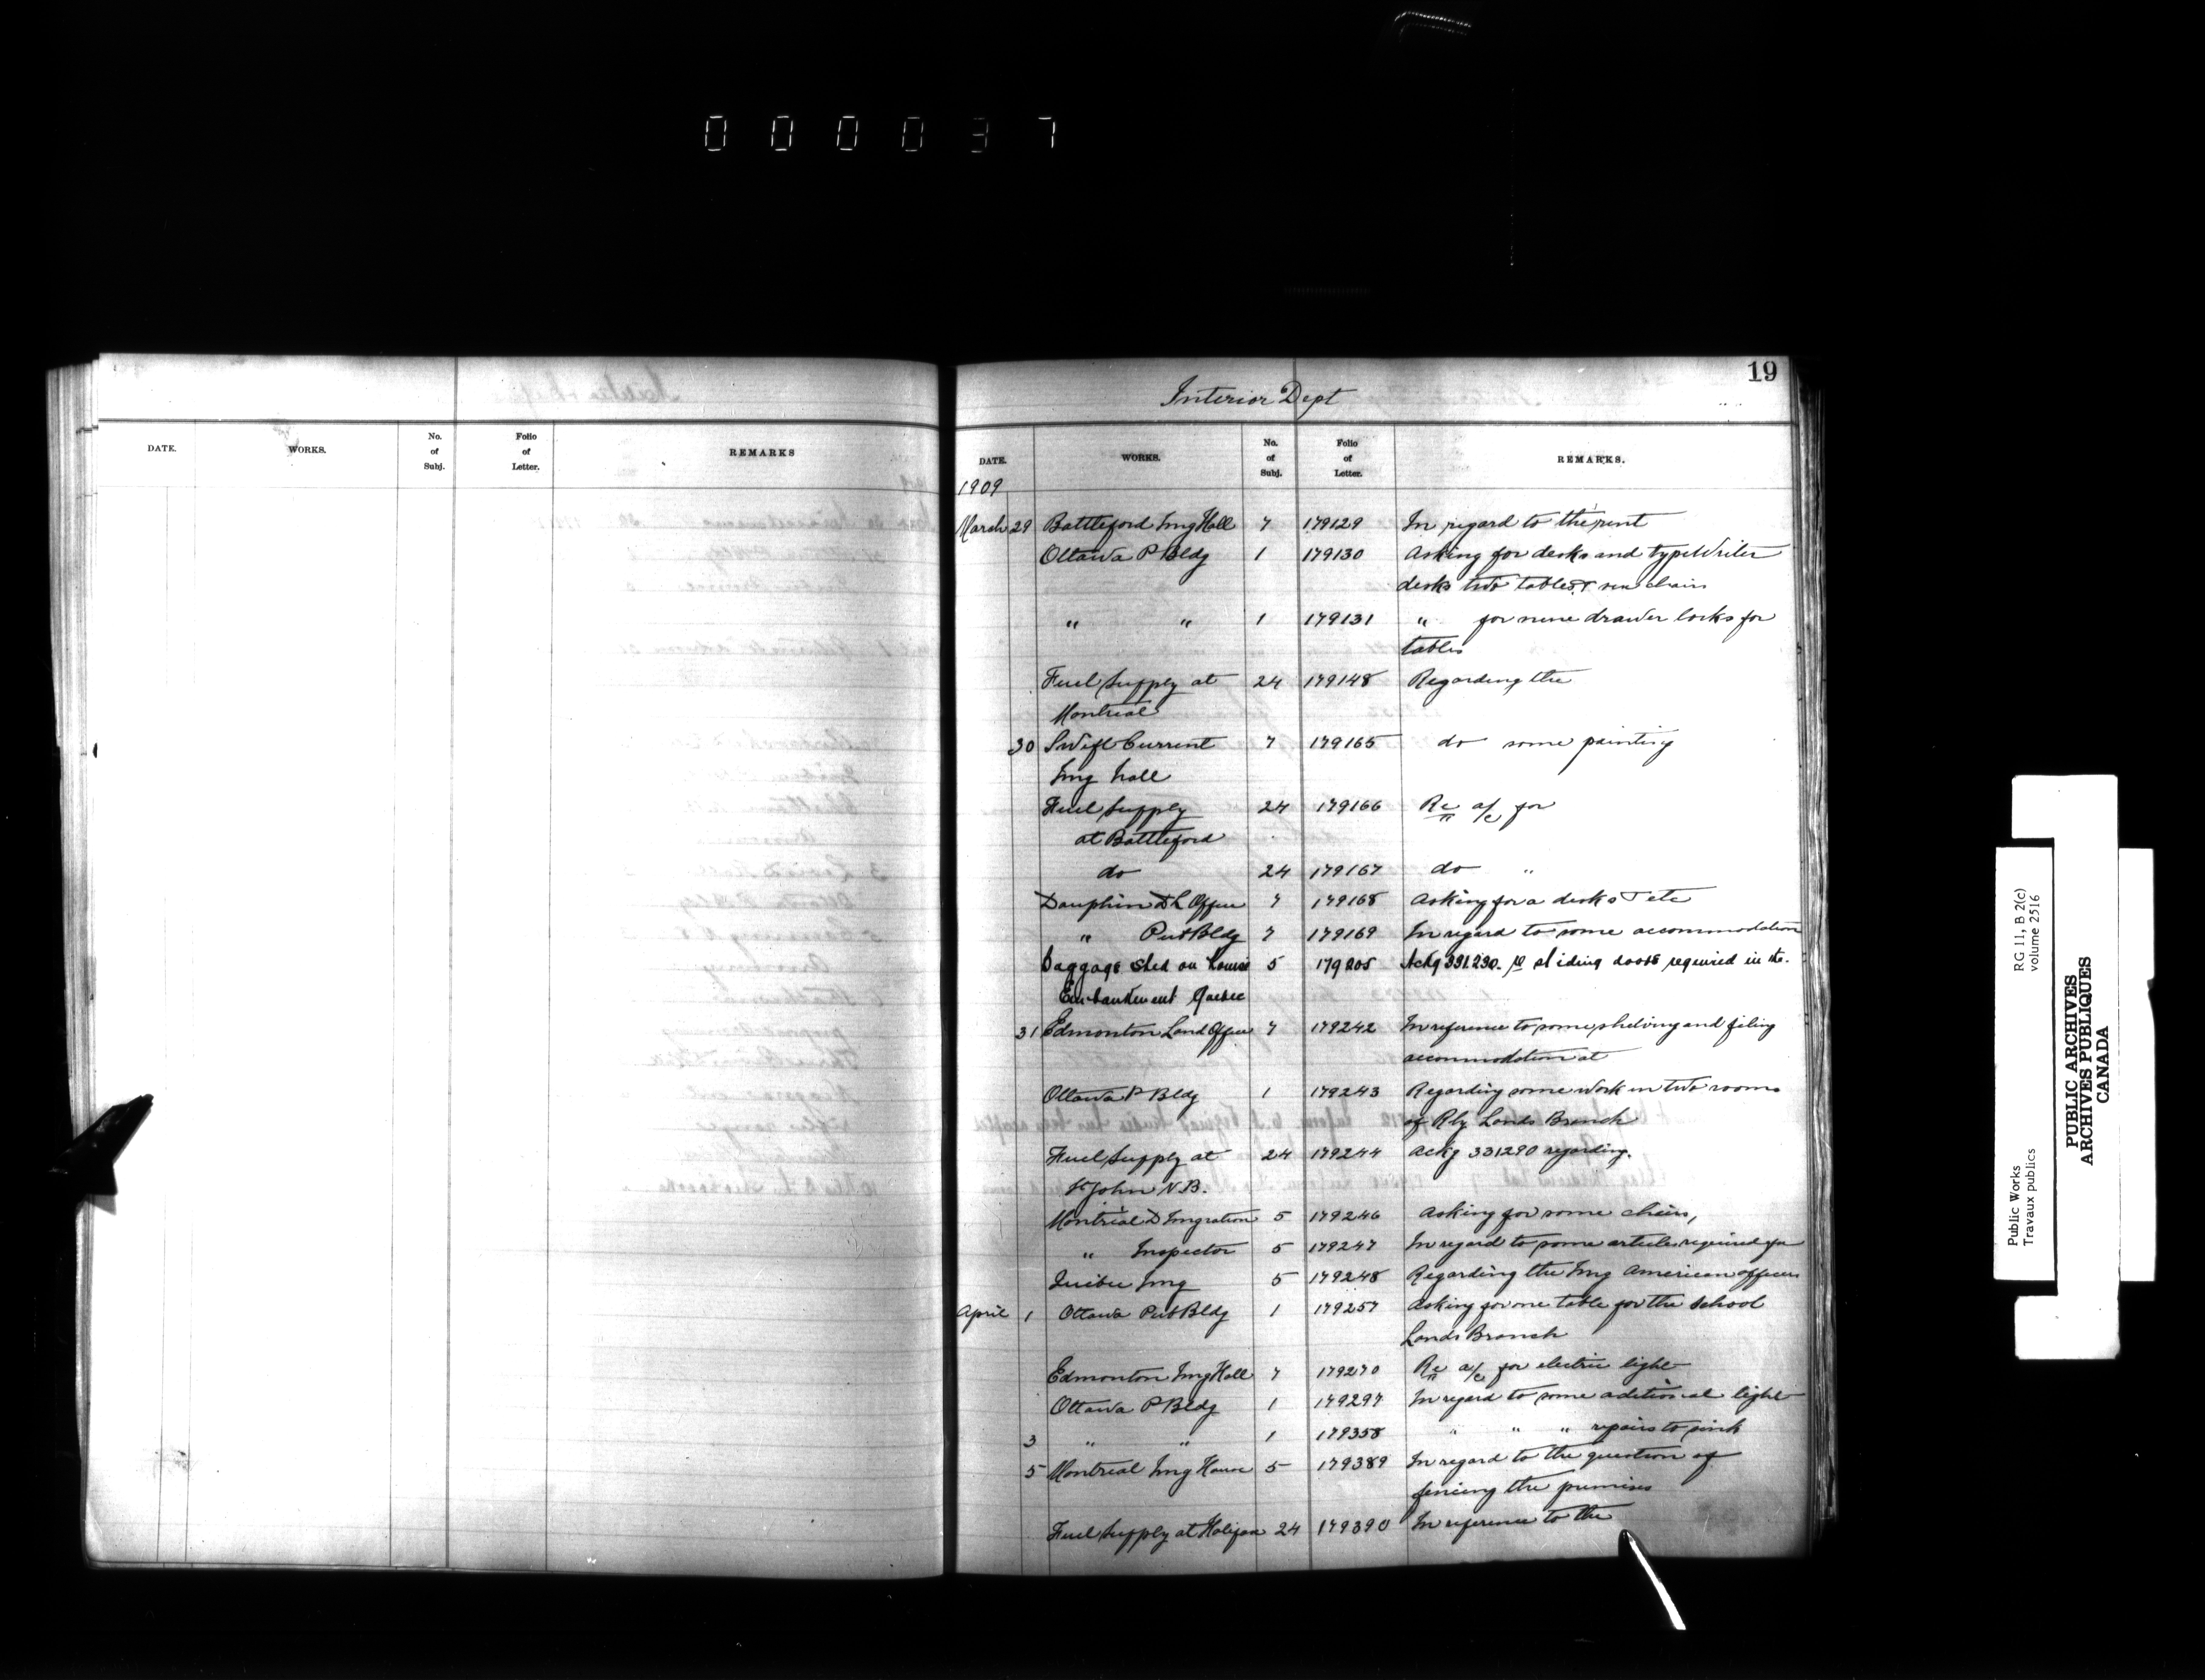 000037
19
Interior Dept
DATE. WORKS. No. of Subj. Folio of Letter. REMARKS
DATE. WORKS. No. of Subj. Folio of Letter. REMARKS.
1909
March 29 Battleford Img Hall 7 179129 In regard to the rent
Ottawa P Bldg 1 179130 Asking for desks and typewriter
desks two tables & chairs
" " 1 179131 " for nine drawer locks for
tables
Fuel Supply at 24 179148 Regarding the
Montreal
30 Swift Current 7 179165 do some painting
Img Hall
Fuel Supply 24 179166 Re a/c for
at Battleford
do 24 179167 do "
Dauphin D L Office 7 179168 Asking for a desks & etc
" Pub Bldg 7 179169 In regard to some accommodation
Baggage Shed on Louise 5 179205 Ackg 331230. re sliding doors required in the.
Embankment Quebec
31 Edmonton Land Office 7 179242 In reference to some shelving and filing
accommodation at
Ottawa P Bldg 1 179243 Regarding some work in two rooms
of Rly Lands Branch
Fuel Supply at 24 179244 Ackg 331290 regarding.
St John N.B.
Montreal D Imgration 5 179246 Asking for some chairs,
" Inspector 5 179247 In regard to some articles required for
Quebec Img 5 179248 Regarding the Img American officers
April 1 Ottawa Pub Bldg 1 179257 Asking for one table for the School
Lands Branch
Edmonton Img Hall 7 179270 Re a/c for electric light
Ottawa P Bldg 1 179297 In regard to some aditional light
3 " " 1 179358 " " " repairs to sink
5 Montreal Img House 5 179389 In regard to the question of
fencing the premises
Fuel Supply at Halifax 24 179390 In reference to the
Public Works
Travaux publics
RG 11, B 2(c)
volume 2516
PUBLIC ARCHIVES
ARCHIVES PUBLIQUES
CANADA